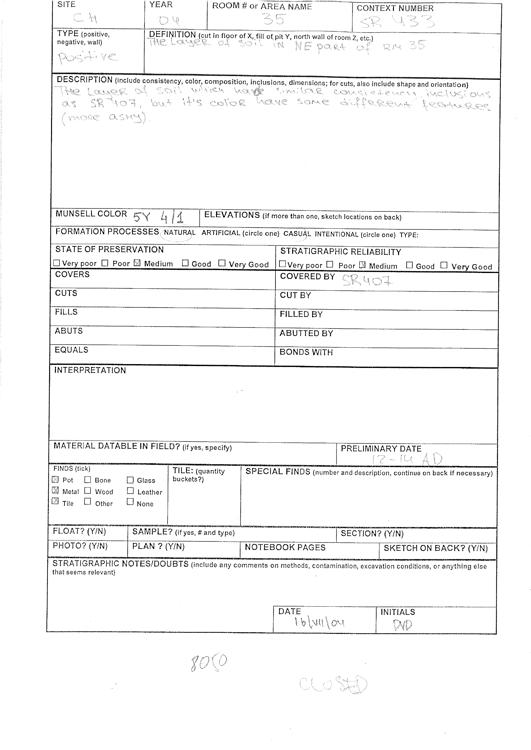 SITE YEAR ROOM # or AREA NAME CONTEXT NUMBER
CH 04 35 SR 433
TYPE (positive, negative, wall) DEFINITION (cut in floor of X, fill of pit Y, north wall of room Z, etc.)
positive The Layer of soil in NE part of RM 35
DESCRIPTION (include consistency, color, composition, inclusions, dimensions; for cuts, also include shape and orientation)
The Layer of soil which have similar consistency, inclusions
as SR 407, but it's color have some different features
(more ashy)
MUNSELL COLOR 5Y 4/1 ELEVATIONS (if more than one, sketch locations on back)
FORMATION PROCESSES NATURAL ARTIFICIAL (circle one) CASUAL INTENTIONAL (circle one) TYPE:
STATE OF PRESERVATION STRATIGRAPHIC RELIABILITY
☐ Very poor ☐ Poor ☒ Medium ☐ Good ☐ Very Good ☐ Very poor ☐ Poor ☒ Medium ☐ Good ☐ Very Good
COVERS COVERED BY SR407
CUTS CUT BY
FILLS FILLED BY
ABUTS ABUTTED BY
EQUALS BONDS WITH
INTERPRETATION
MATERIAL DATABLE IN FIELD? (if yes, specify) PRELIMINARY DATE
12-14 AD
FINDS (tick) TILE: (quantity buckets?) SPECIAL FINDS (number and description, continue on back if necessary)
☒ Pot ☐ Bone ☐ Glass
☒ Metal ☐ Wood ☐ Leather
☒ Tile ☐ Other ☐ None
FLOAT? (Y/N) SAMPLE? (if yes, # and type) SECTION? (Y/N)
PHOTO? (Y/N) PLAN ? (Y/N) NOTEBOOK PAGES SKETCH ON BACK? (Y/N)
STRATIGRAPHIC NOTES/DOUBTS (include any comments on methods, contamination, excavation conditions, or anything else
that seems relevant)
DATE INITIALS
16/VII/04 DVD
8050
CLOSED